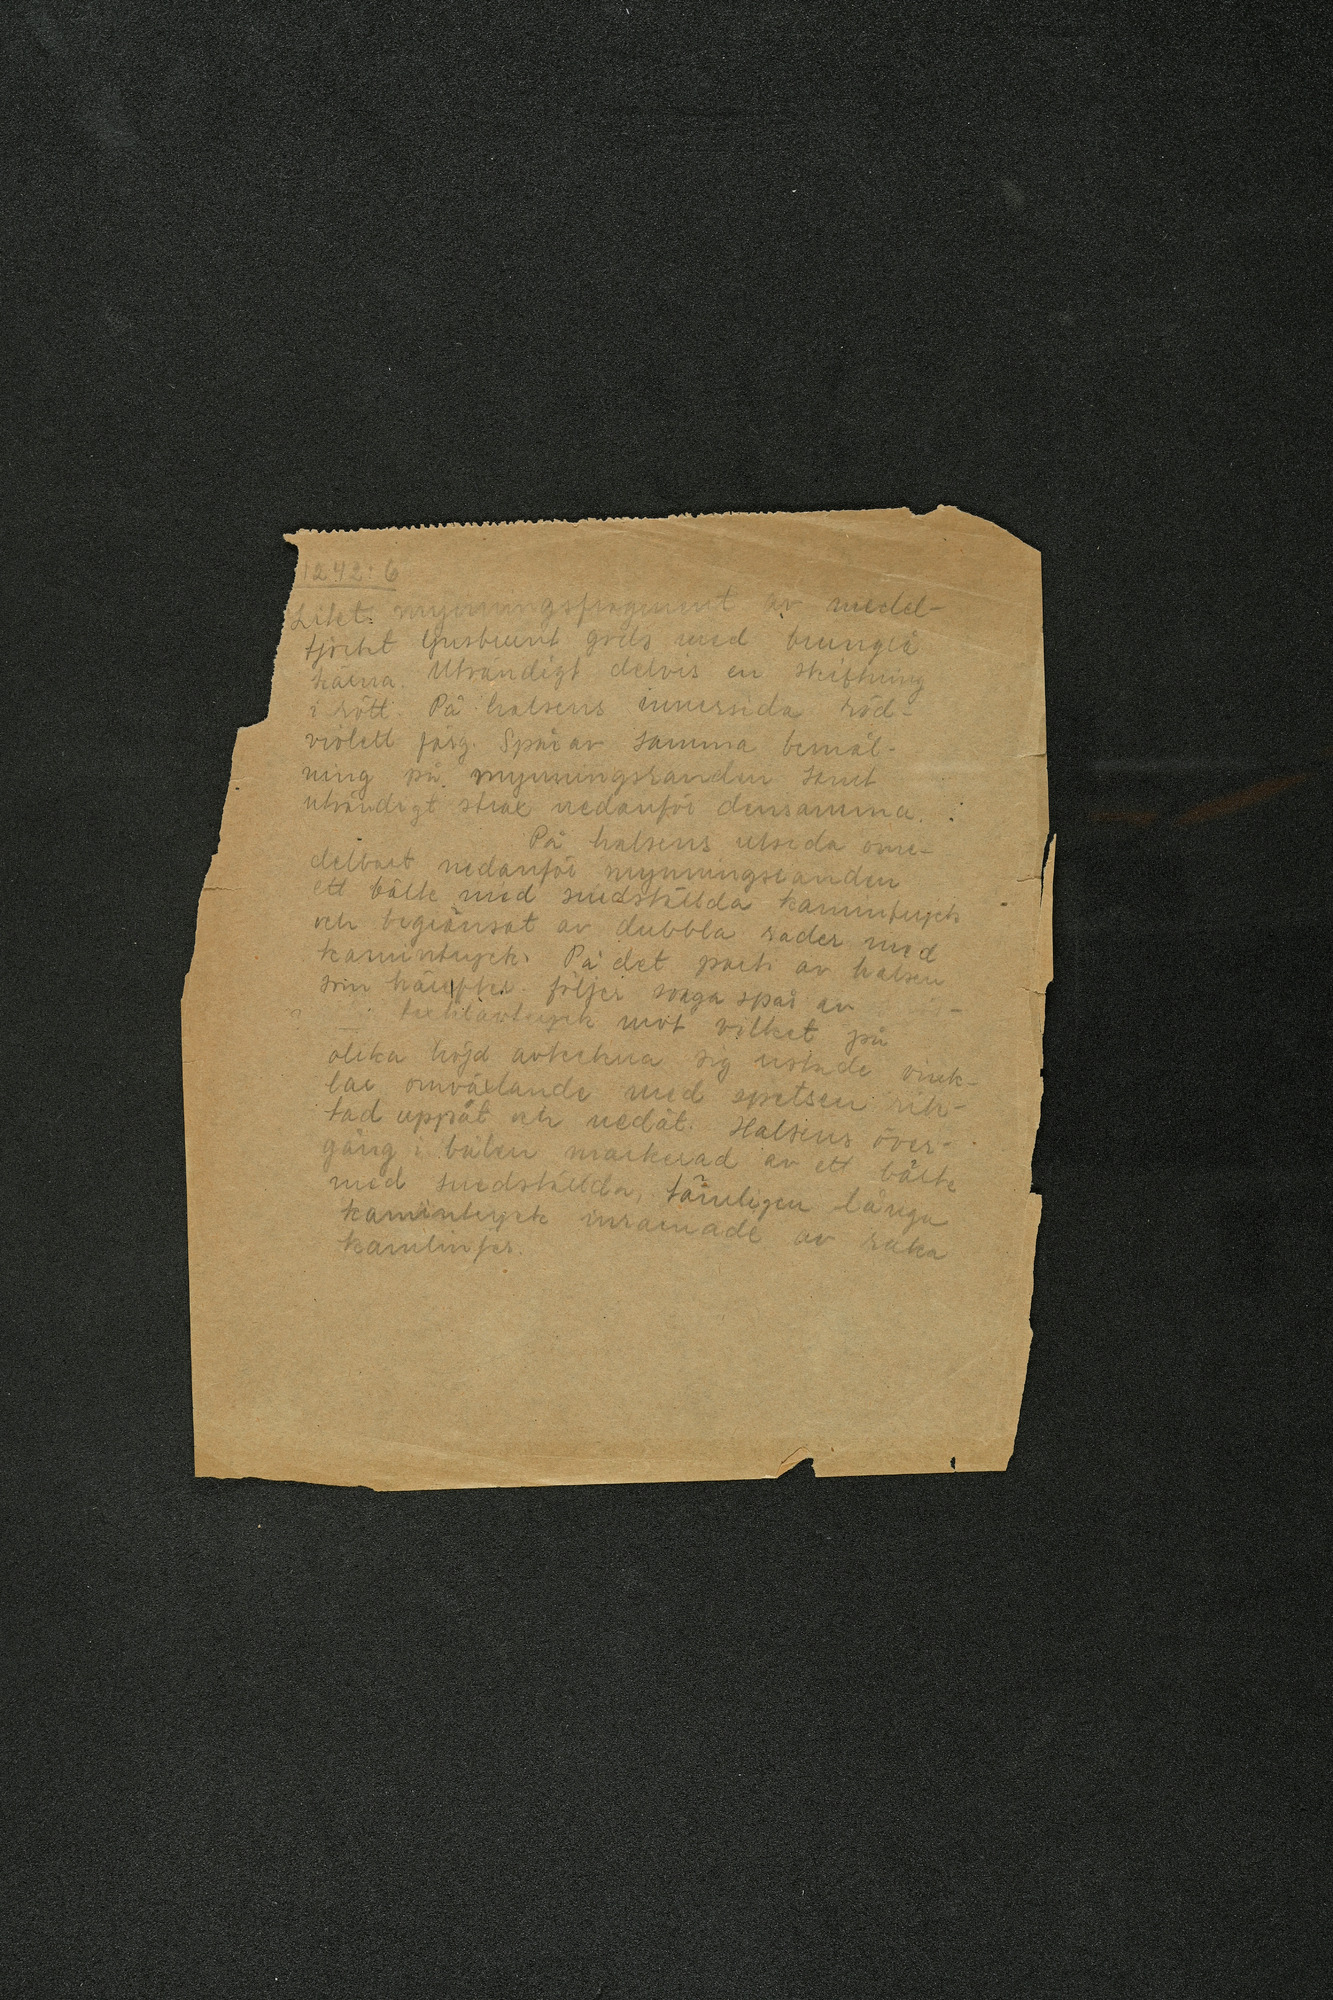 1242:6
Litet mynningsfragment av medel-
tjockt ljusbrunt gods med brungrå
kärna. Utvändigt delvis en skiftning
i rött. På halsens innersida röd-
violett färg. Spår av samma bemål-
ning på mynningsranden samt
utvändigt strax nedanför densamma.
På halsens utsida ome-
delbart nedanför mynningsranden
ett bälte med snedställda kamintryck
och begränsat av dubbla rader med
kamintryck. På det parti av halsen
som härefter följer svaga spår av
textilavtryck mot vilket på
olika höjd avteckna sig ristade vink-
lar omväxlande med spetsen rik-
tad uppåt och nedåt. Halsens över-
gång i buken markerad av ett bälte
med snedställda, tämligen långa
kamintryck inramade av raka
kamlinjer.